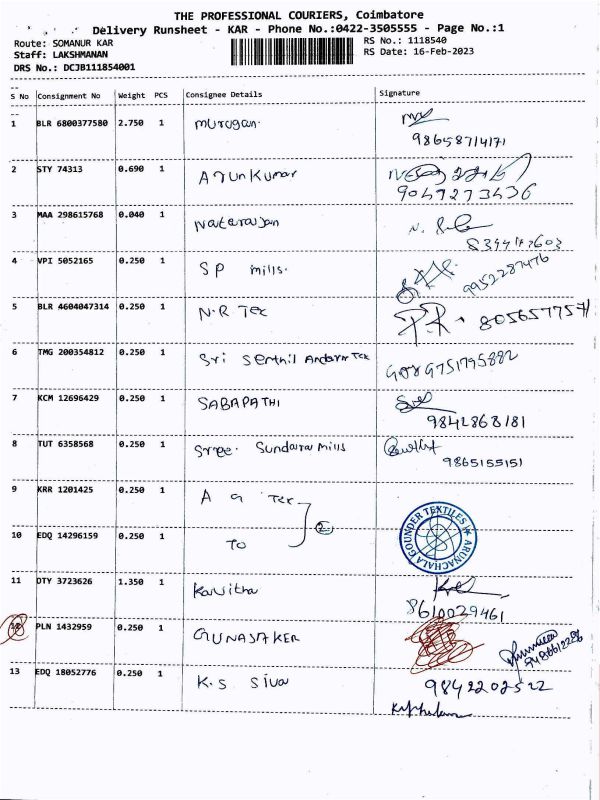 THE PROFESSIONAL COURIERS, Coimbatore
Delivery Runsheet - KAR - Phone No.:0422-3505555 - Page No.:1
Route: SOMANUR KAR
RS No.: 1118540
Staff: LAKSHMANAN
RS Date: 16-Feb-2023
DRS No.: DCJB111854001
S No Consignment No Weight PCS Consignee Details Signature
1 BLR 6800377580 2.750 1 murugan.
9865871471
2 STY 74313 0.690 1 Arunkumar
9047273636
3 MAA 298615768 0.040 1 Natarajan
4 VPI 5052165 0.250 1 SP mills.
9952287476
5 BLR 4604047314 0.250 1 N.R Tex
P.R. 8056577571
6 TMG 200354812 0.250 1 Sri Senthil Andavar Tex
9751795882
7 KCM 12696429 0.250 1 SABAPATHI
9842868181
8 TUT 6358568 0.250 1 Sree. Sundara Mills
9865155151
9 KRR 1201425 0.250 1 A G Tex
2
ARUNACHALA GOUNDER TEXTILES
10 EDQ 14296159 0.250 1 TO
11 DTY 3723626 1.350 1 Kavitha
8610029461
12 PLN 1432959 0.250 1 GUNASAKER
13 EDQ 18052776 0.250 1 K.S Siva
9842202522